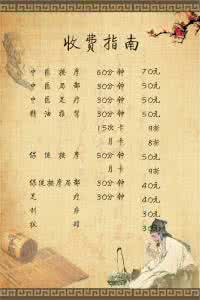 收费指南
中医按摩 60分钟 70元
中医局部 30分钟 50元
中医足疗 30分钟 50元
精油推背 30分钟 50元
15次卡 9折
月卡 8折
保健按摩 50分钟 50元
月卡 9折
保健按摩局部 30分钟 40元
足疗 30分钟 40元
刮痧 30元
拔罐 30元